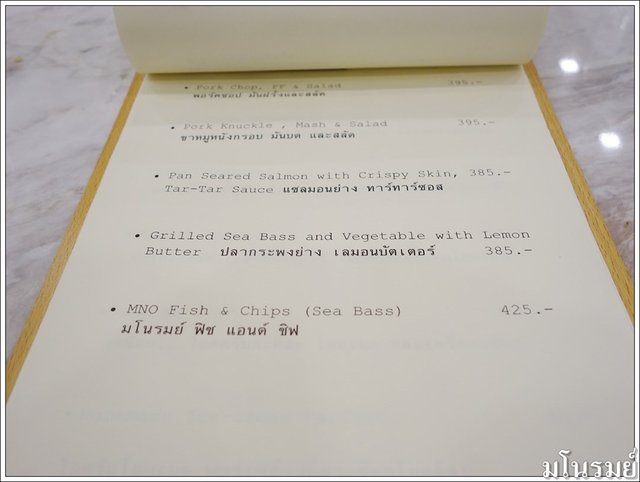 • Pork Chop, FF & Salad 395.-
พอร์คชอป มันฝรั่งและสลัด
• Pork Knuckle , Mash & Salad 395.-
ขาหมูหนังกรอบ มันบด และสลัด
• Pan Seared Salmon with Crispy Skin, 385.-
Tar-Tar Sauce แซลมอนย่าง ทาร์ทาร์ซอส
• Grilled Sea Bass and Vegetable with Lemon
Butter ปลากระพงย่าง เลมอนบัตเตอร์ 385.-
• MNO Fish & Chips (Sea Bass) 425.-
มโนรมย์ ฟิช แอนด์ ชิฟ
มโนรมย์